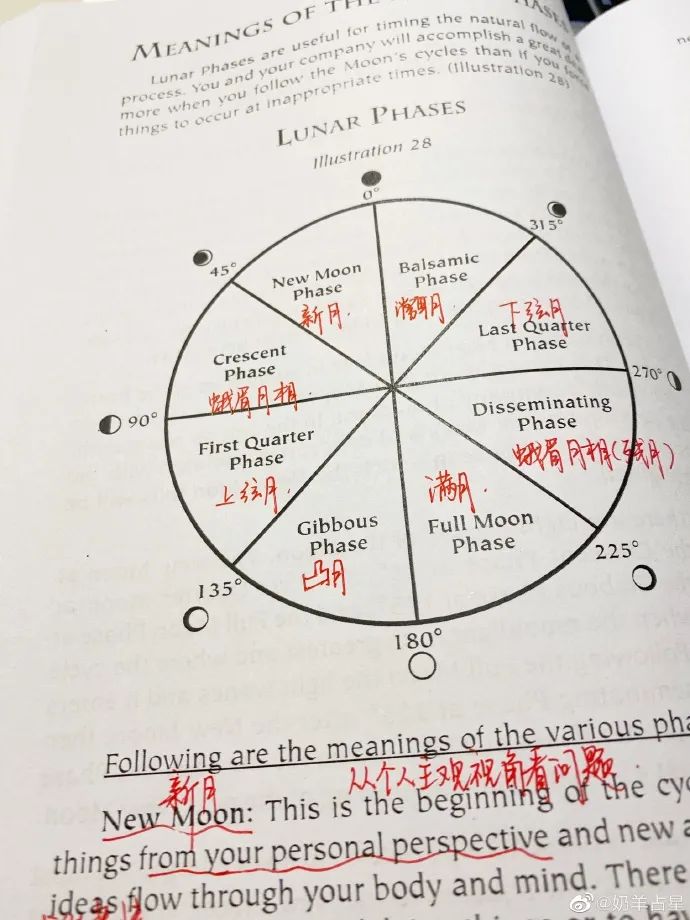 MEANINGS OF THE
Lunar Phases are useful for timing the natural flow of
process. You and your company will accomplish a great
more when you follow the Moon's cycles than if you
things to occur at inappropriate times. (Illustration 28)
LUNAR PHASES
Illustration 28
0°
315°
45°
New Moon
Phase
新月.
Balsamic
Phase
月.
下弦月
Last Quarter
Phase
Crescent
Phase
蛾眉月相.
270°
90°
Disseminating
Phase
蛾眉月相(残月)
First Quarter
Phase
上弦月.
满月.
Gibbous
Phase
凸月
Full Moon
Phase
225°
135°
180°
Following are the meanings of the various
新月
从个人主观视角看问题.
New Moon: This is the beginning of the
things from your personal perspective and new
ideas flow through your body and mind. There
@奶羊占星